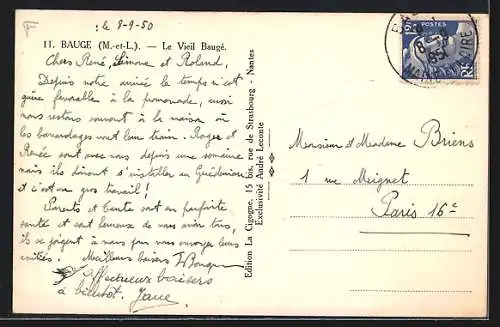 le 8-9-50
11. BAUGE (M.-et-L.). — Le Vieil Baugé.
Chers René, Simone et Roland,
Depuis notre arrivée le temps n'est
guère favorable à la promenade, aussi
nous restons souvent à la maison où
les bavardages vont leur train. Roger et
Renée sont avec nous depuis une semaine
mais ils doivent s'installer en
et c'est un gros travail !
Parents et tante sont en parfaite
santé et sont heureux de nous avoir tous,
ils se joignent à nous pour vous envoyer leurs
amitiés. Meilleurs baisers
affectueux baisers
à bientôt.
Edition La Cigogne, 15 bis, rue de Strasbourg - Nantes
Exclusivité André Leconte
POSTES
RF
Monsieur et Madame Briens
1 rue Meignet
Paris 16e